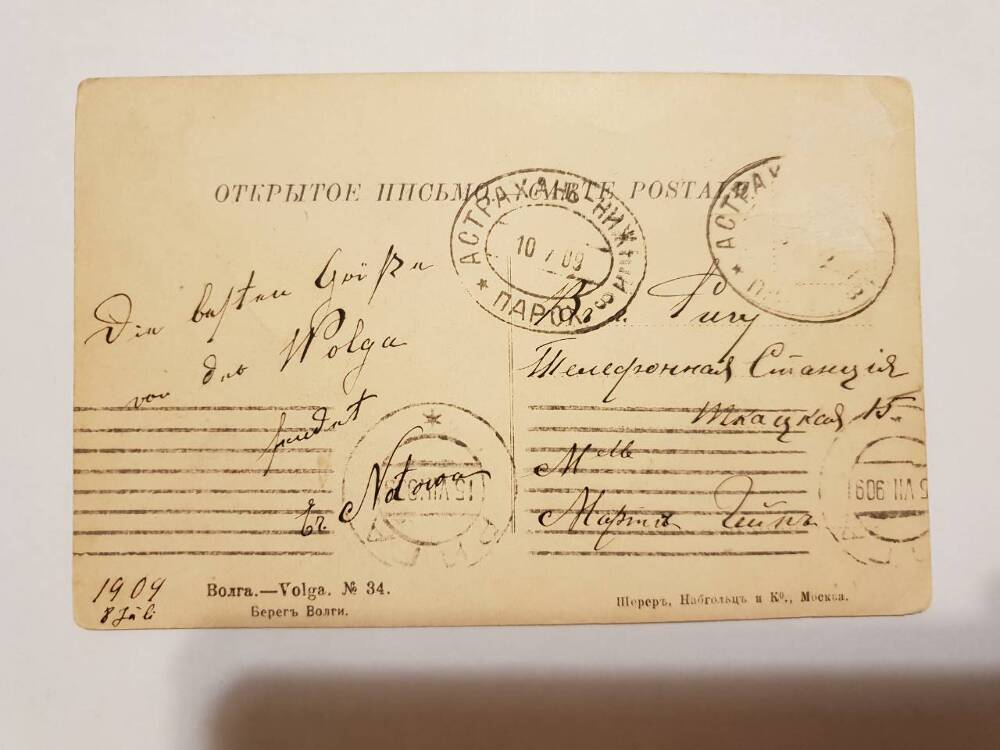 ОТКРЫТОЕ ПИСЬМО. CARTE POSTALE
АСТРАХАНЬ-НИЖНІЙ
10 7 09
ПАРОХ.
АСТРАХ
Die besten Grüße
von der Wolga
sendet
В г. Ригу
Телефонная Станція
Ткацкая 15.
M lle
Марта
15 VII 909
5 VII 909
1909
8 Juli
Волга.—Volga. № 34.
Берегъ Волги.
Шереръ, Набгольцъ и Ко., Москва.